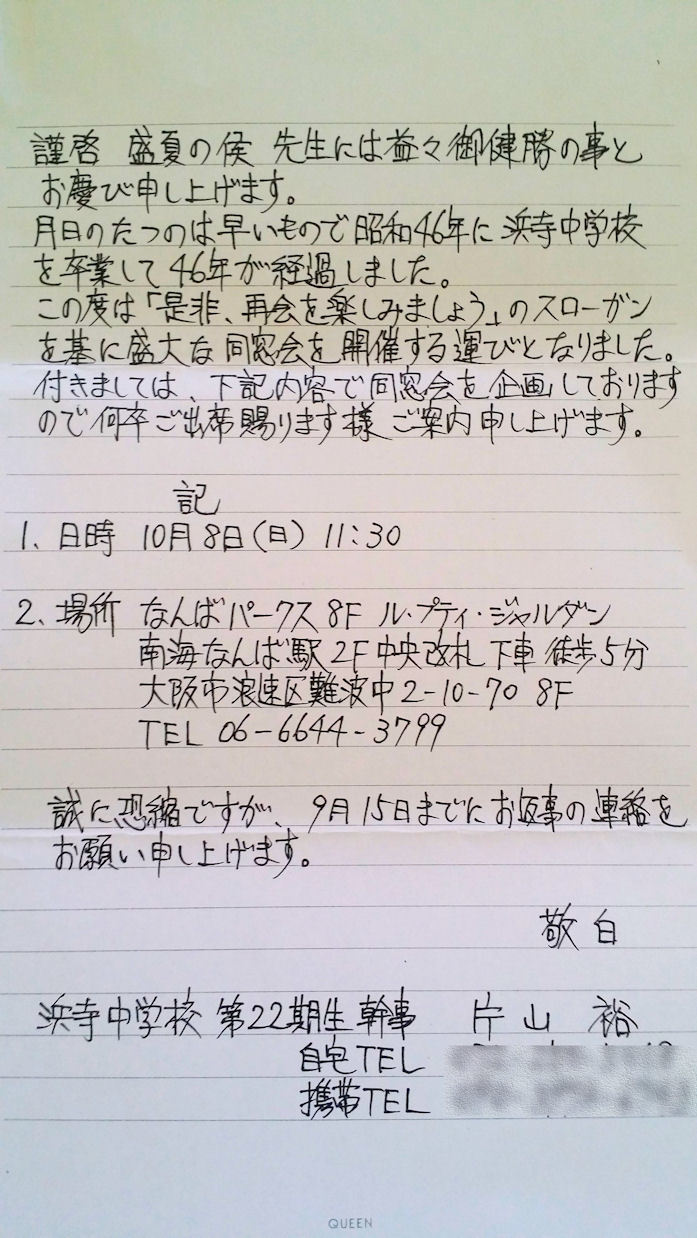 謹啓 盛夏の候 先生には益々御健勝の事と
お慶び申し上げます。
月日のたつのは早いもので昭和46年に浜寺中学校
を卒業して46年が経過しました。
この度は「是非、再会を楽しみましょう」のスローガン
を基に盛大な同窓会を開催する運びとなりました。
付きましては、下記内容で同窓会を企画しております
ので何卒ご出席賜ります様ご案内申し上げます。
記
1、日時 10月8日(日) 11:30
2、場所 なんばパークス8F ル・プティ・ジャルダン
南海なんば駅2F中央改札下車 徒歩5分
大阪市浪速区難波中2-10-70 8F
TEL 06-6644-3799
誠に恐縮ですが、9月15日までにお返事の連絡を
お願い申し上げます。
敬白
浜寺中学校 第22期生 幹事 片山 裕
自宅TEL
携帯TEL
QUEEN